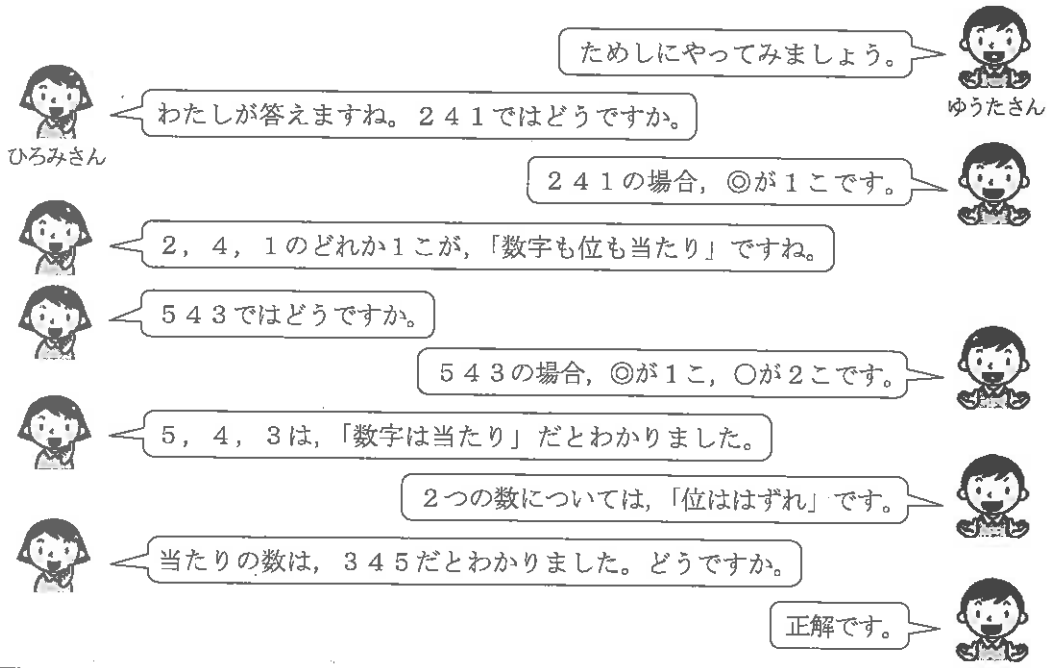 ためしにやってみましょう。
ゆうたさん
わたしが答えますね。241ではどうですか。
ひろみさん
241の場合，◎が1こです。
2，4，1のどれか1こが，「数字も位も当たり」ですね。
543ではどうですか。
543の場合，◎が1こ，○が2こです。
5，4，3は，「数字は当たり」だとわかりました。
2つの数については，「位ははずれ」です。
当たりの数は，345だとわかりました。どうですか。
正解です。